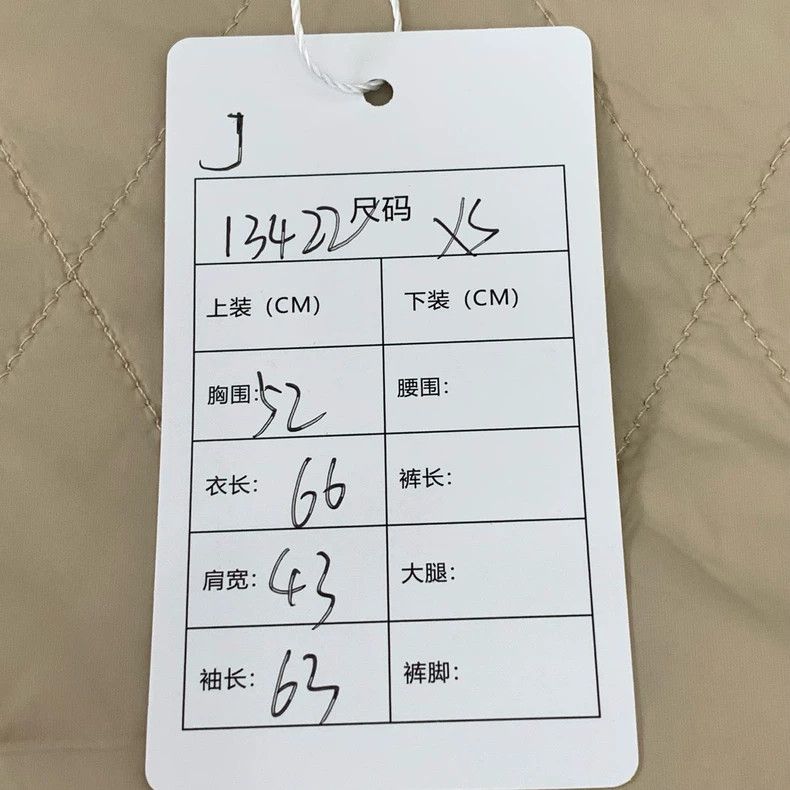 J
13422 尺码 XS
上装（CM） 下装（CM）
胸围：52 腰围：
衣长：66 裤长：
肩宽：43 大腿：
袖长：63 裤脚：